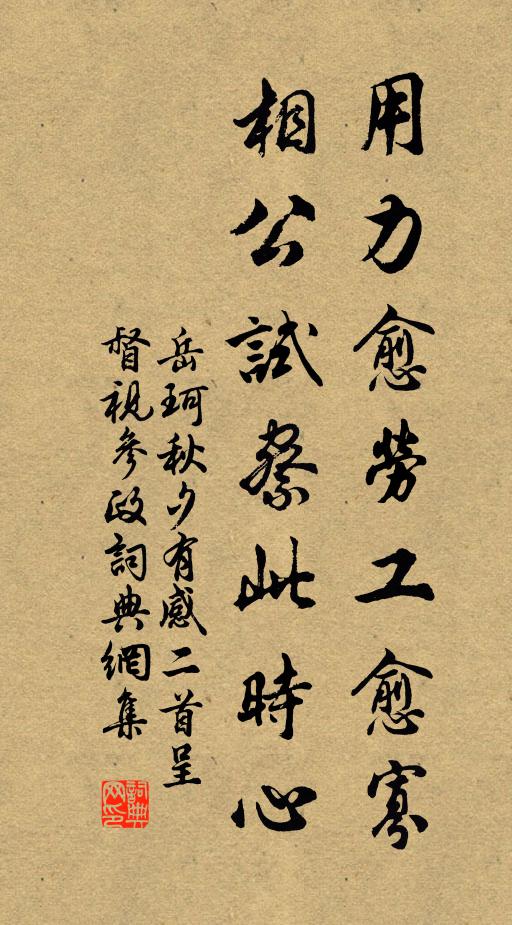 用力愈勞工愈寡
相公試察此時心
岳珂秋夕有感二首呈
督視參政詞典網集
詞典
网印